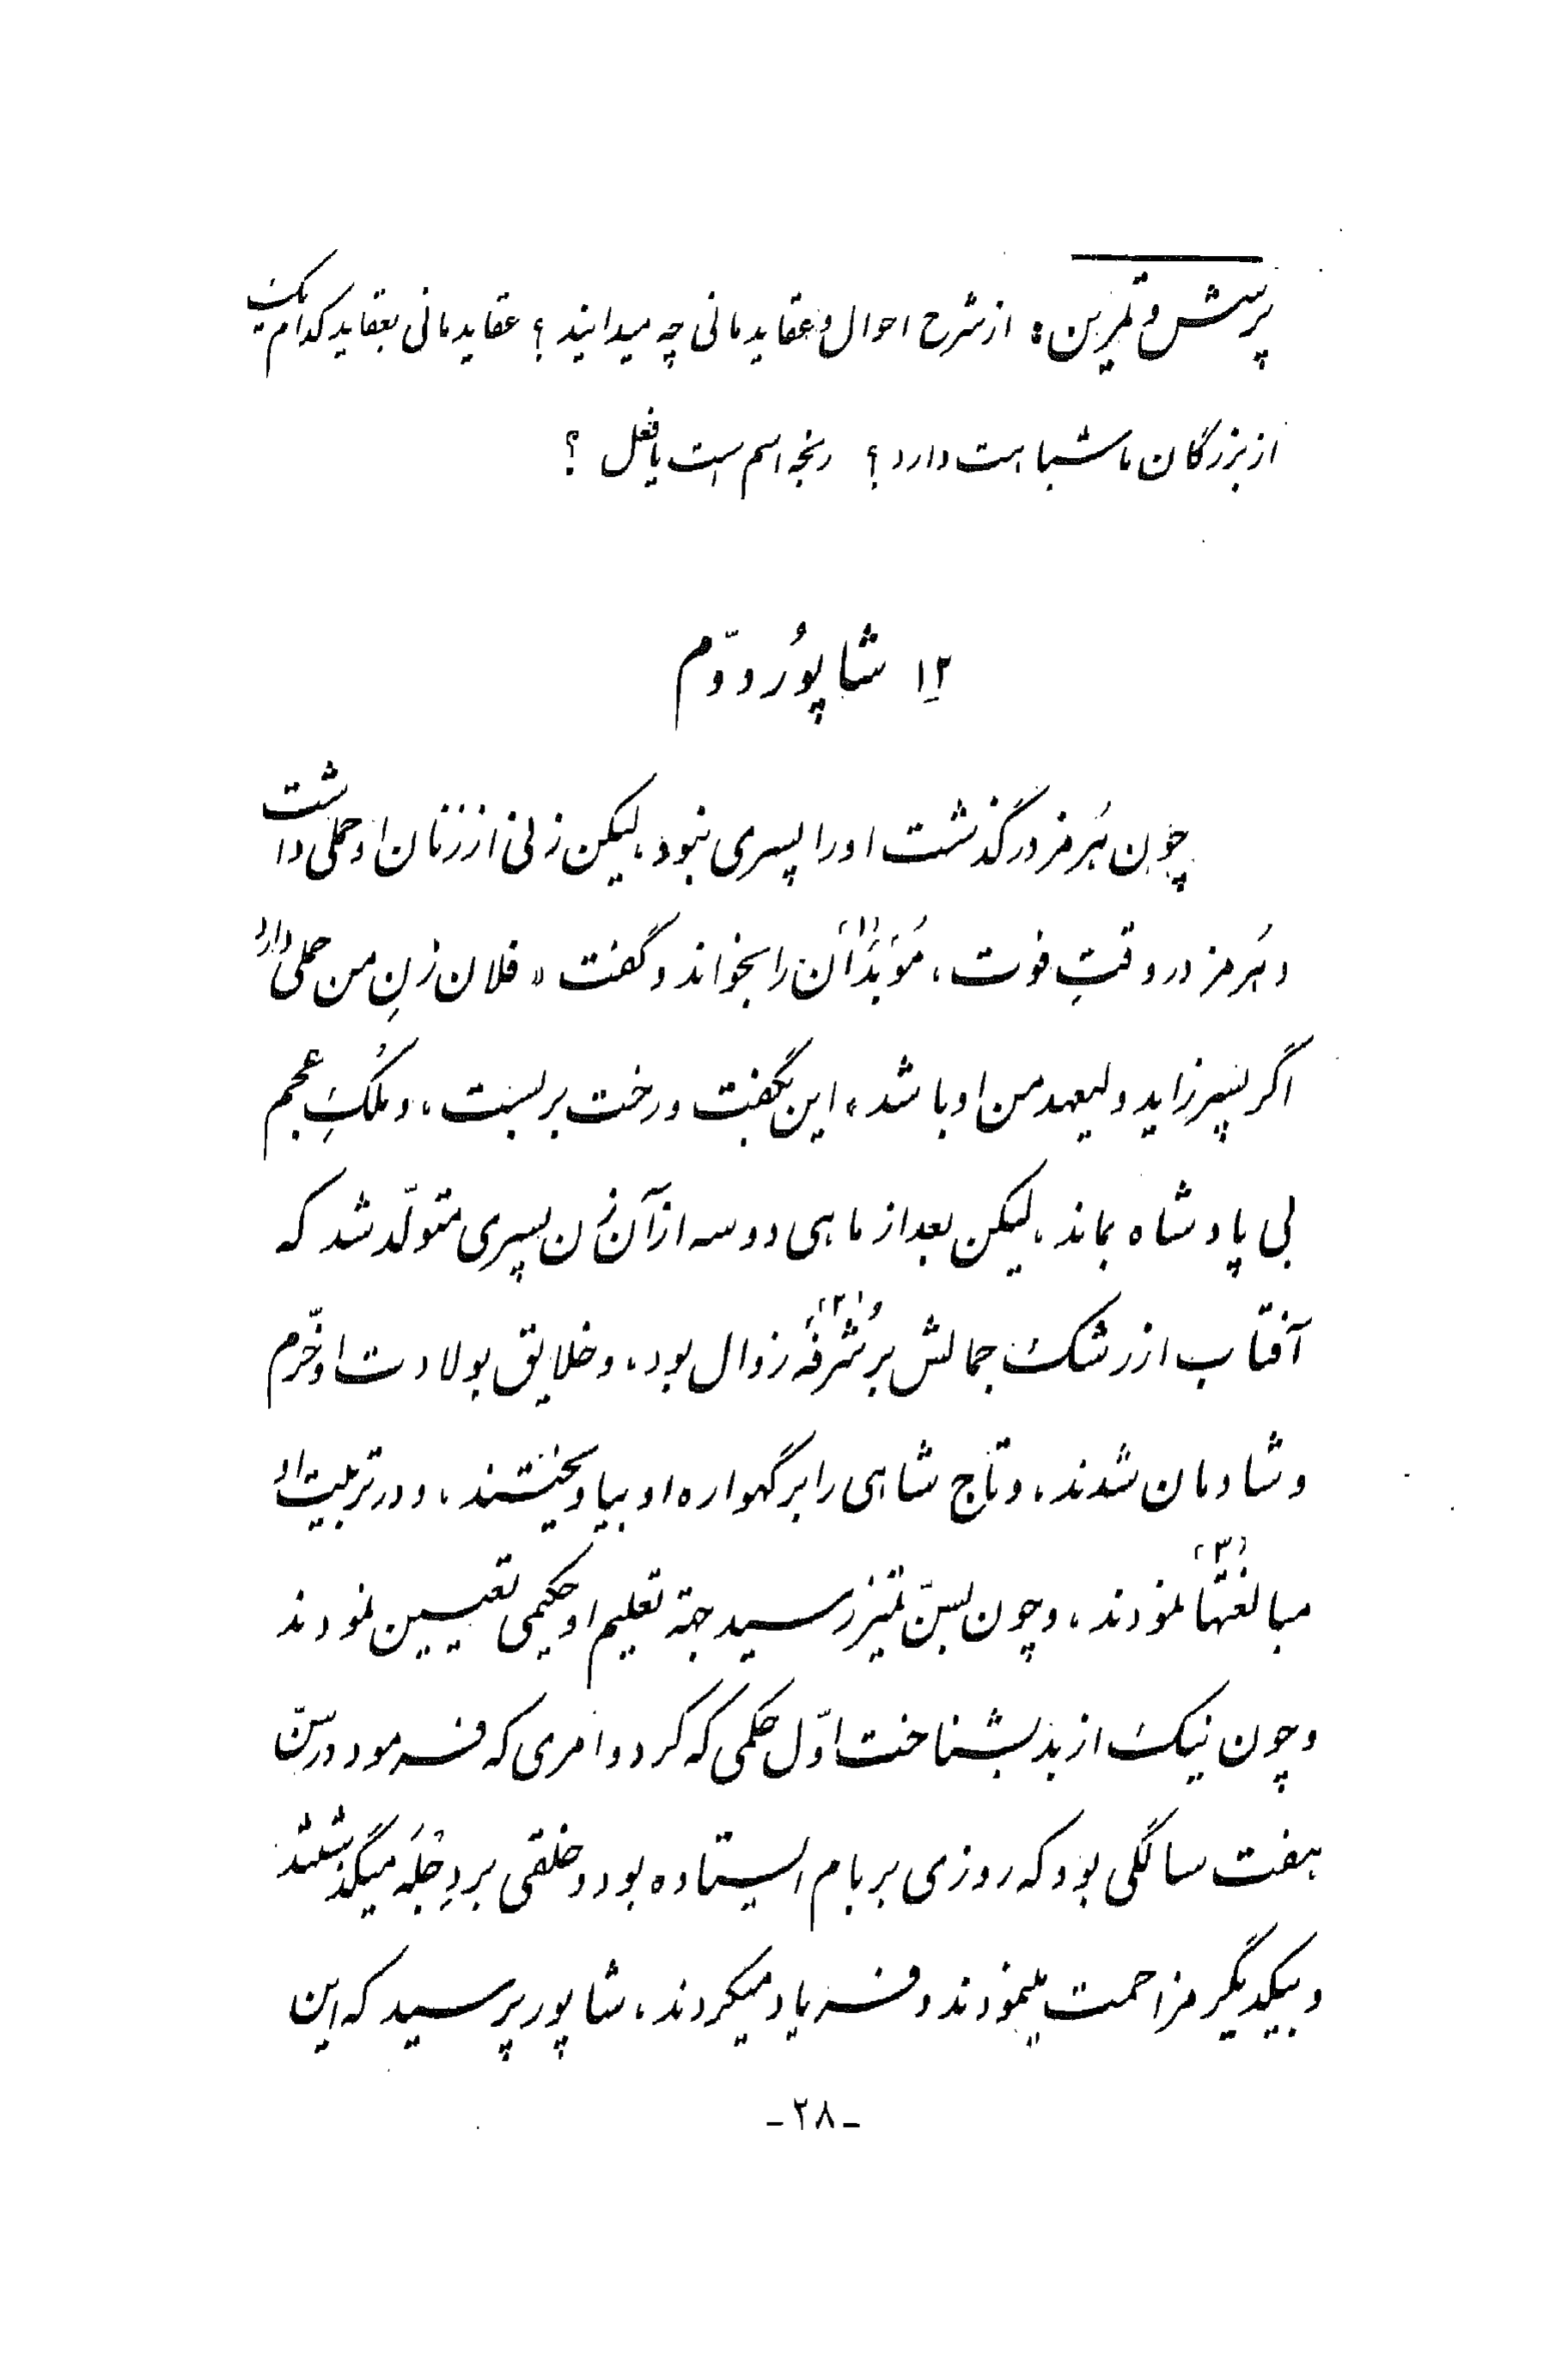 پرسش و تمرین : از شرح احوال و عقاید مانی چه میدانید ؟ عقاید مانی بعقاید کدام یک
از بزرگان ما شباهت دارد ؟ رنجه اسم است یا فعل ؟
۱۲ شاپُور دوّم
چون هُرمز درگذشت او را پسری نبود، لیکن زنی از زنان او حملی داشت
و هُرمز در وقتِ فوت، مُوَبَدان (۱) را بخواند و گفت « فلان زنِ من حملی دارد
اگر پسر زاید ولیعهد من او باشد » این بگفت و رخت بر بست، و مُلکِ عجم
بی پادشاه بماند، لیکن بعد از ماهی دو سه از آن زن پسری متولّد شد که
آفتاب از رشک جمالش بر شُرفَهٔ (۲) زوال بود، و خلایق بولادت او خرّم
و شادمان شدند، و تاج شاهی را بر گهواره او بیاویختند، و در تربیت او
مبالغُتها (۳) نمودند، و چون بسنّ تمیز رسید جهة تعلیم او حکیمی تعیین نمودند
و چون نیک از بد بشناخت اوّل حکمی که کرد و امری که فرمود در سنّ
هفت سالگی بود که روزی بر بام ایستاده بود و خلقی بر دِجْلَه میگذشتند
و بیکدیگر مزاحمت مینمودند و فریاد میکردند، شاپور پرسید که این
-۲۸-